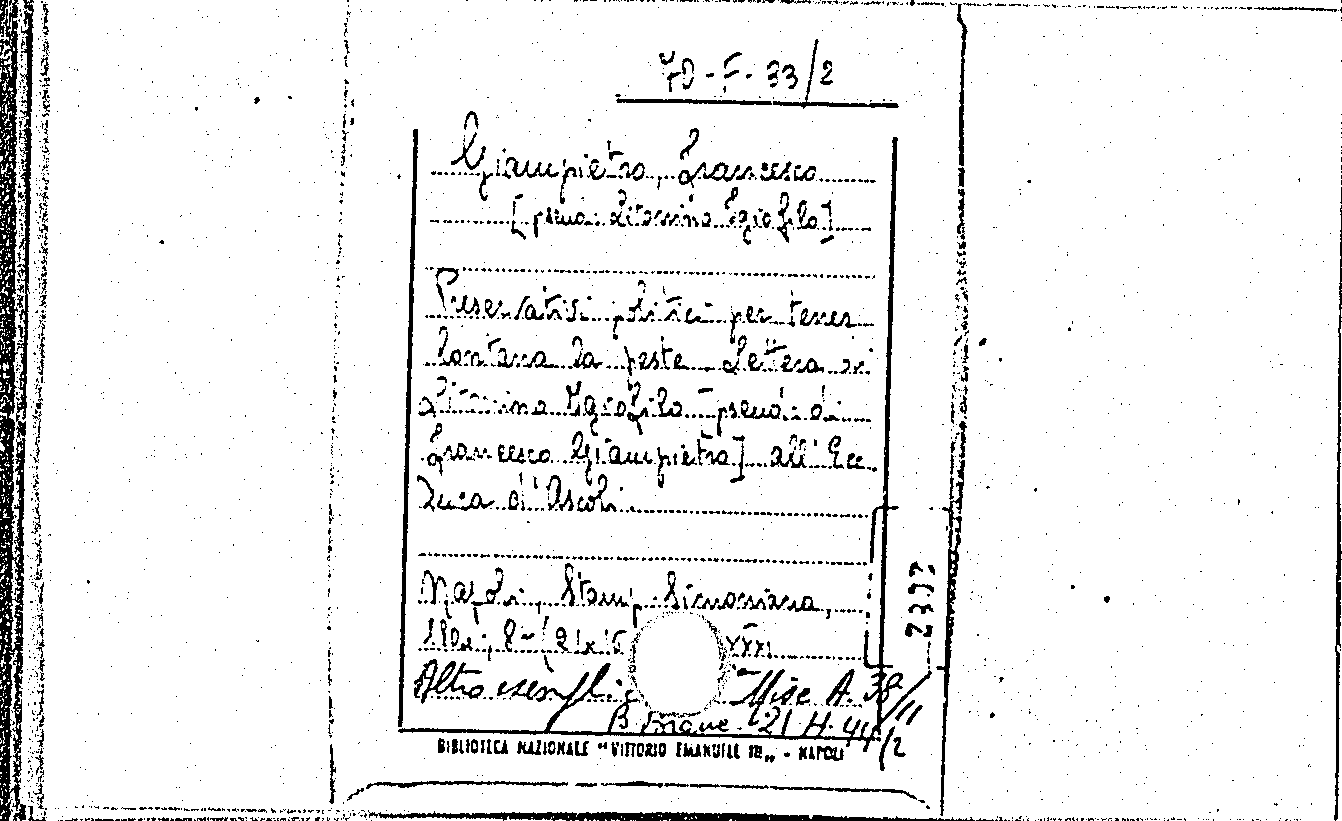 70-F-33/2
Giampietro, Francesco
[pseud. Litomino Egiofilo]
Preservativi politici per tener
lontana la peste. Lettera di
Egiofilo [pseud. di
Francesco Giampietro] all' Ecc.
Duca d'Ascoli.
Napoli, Stamp. Simoniana,
8- XXXI
Altro Misc A. 38/
B. Brane. 21 H. 44/2
BIBLIOTECA NAZIONALE "VITTORIO EMANUELE III" - NAPOLI